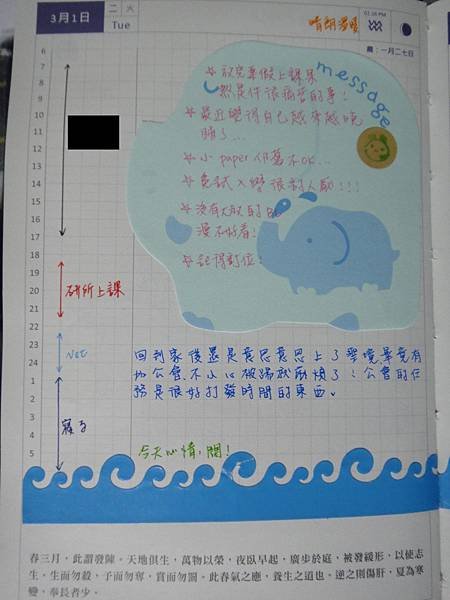 3月1日
二 火
Tue
02:26 PM
晴朗
農:一月二七日
6
7
8
9
10
11
12
13
14
15
16
17
18
19
20
21
22
23
24
1
2
3
4
5
message
放完車假上課果
然是件很痛苦的事!
最近覺得自己越來越晚
睡了…
小paper仍舊不OK…
免試入學很討人厭!!!
沒有大敵的
漫不好看!
記得訂位!
研所上課
Net
寢了
回到家後還是意思意思上了
公會,不小心被
務是很好打發時間的東西。
今天心情:悶!
春三月,此謂發陳。天地俱生,萬物以榮,夜臥早起,廣步於庭,被發緩形,以使志
生。生而勿殺,予而勿奪,賞而勿罰。此春氣之應,養生之道也。逆之則傷肝,夏為寒
變,奉長者少。